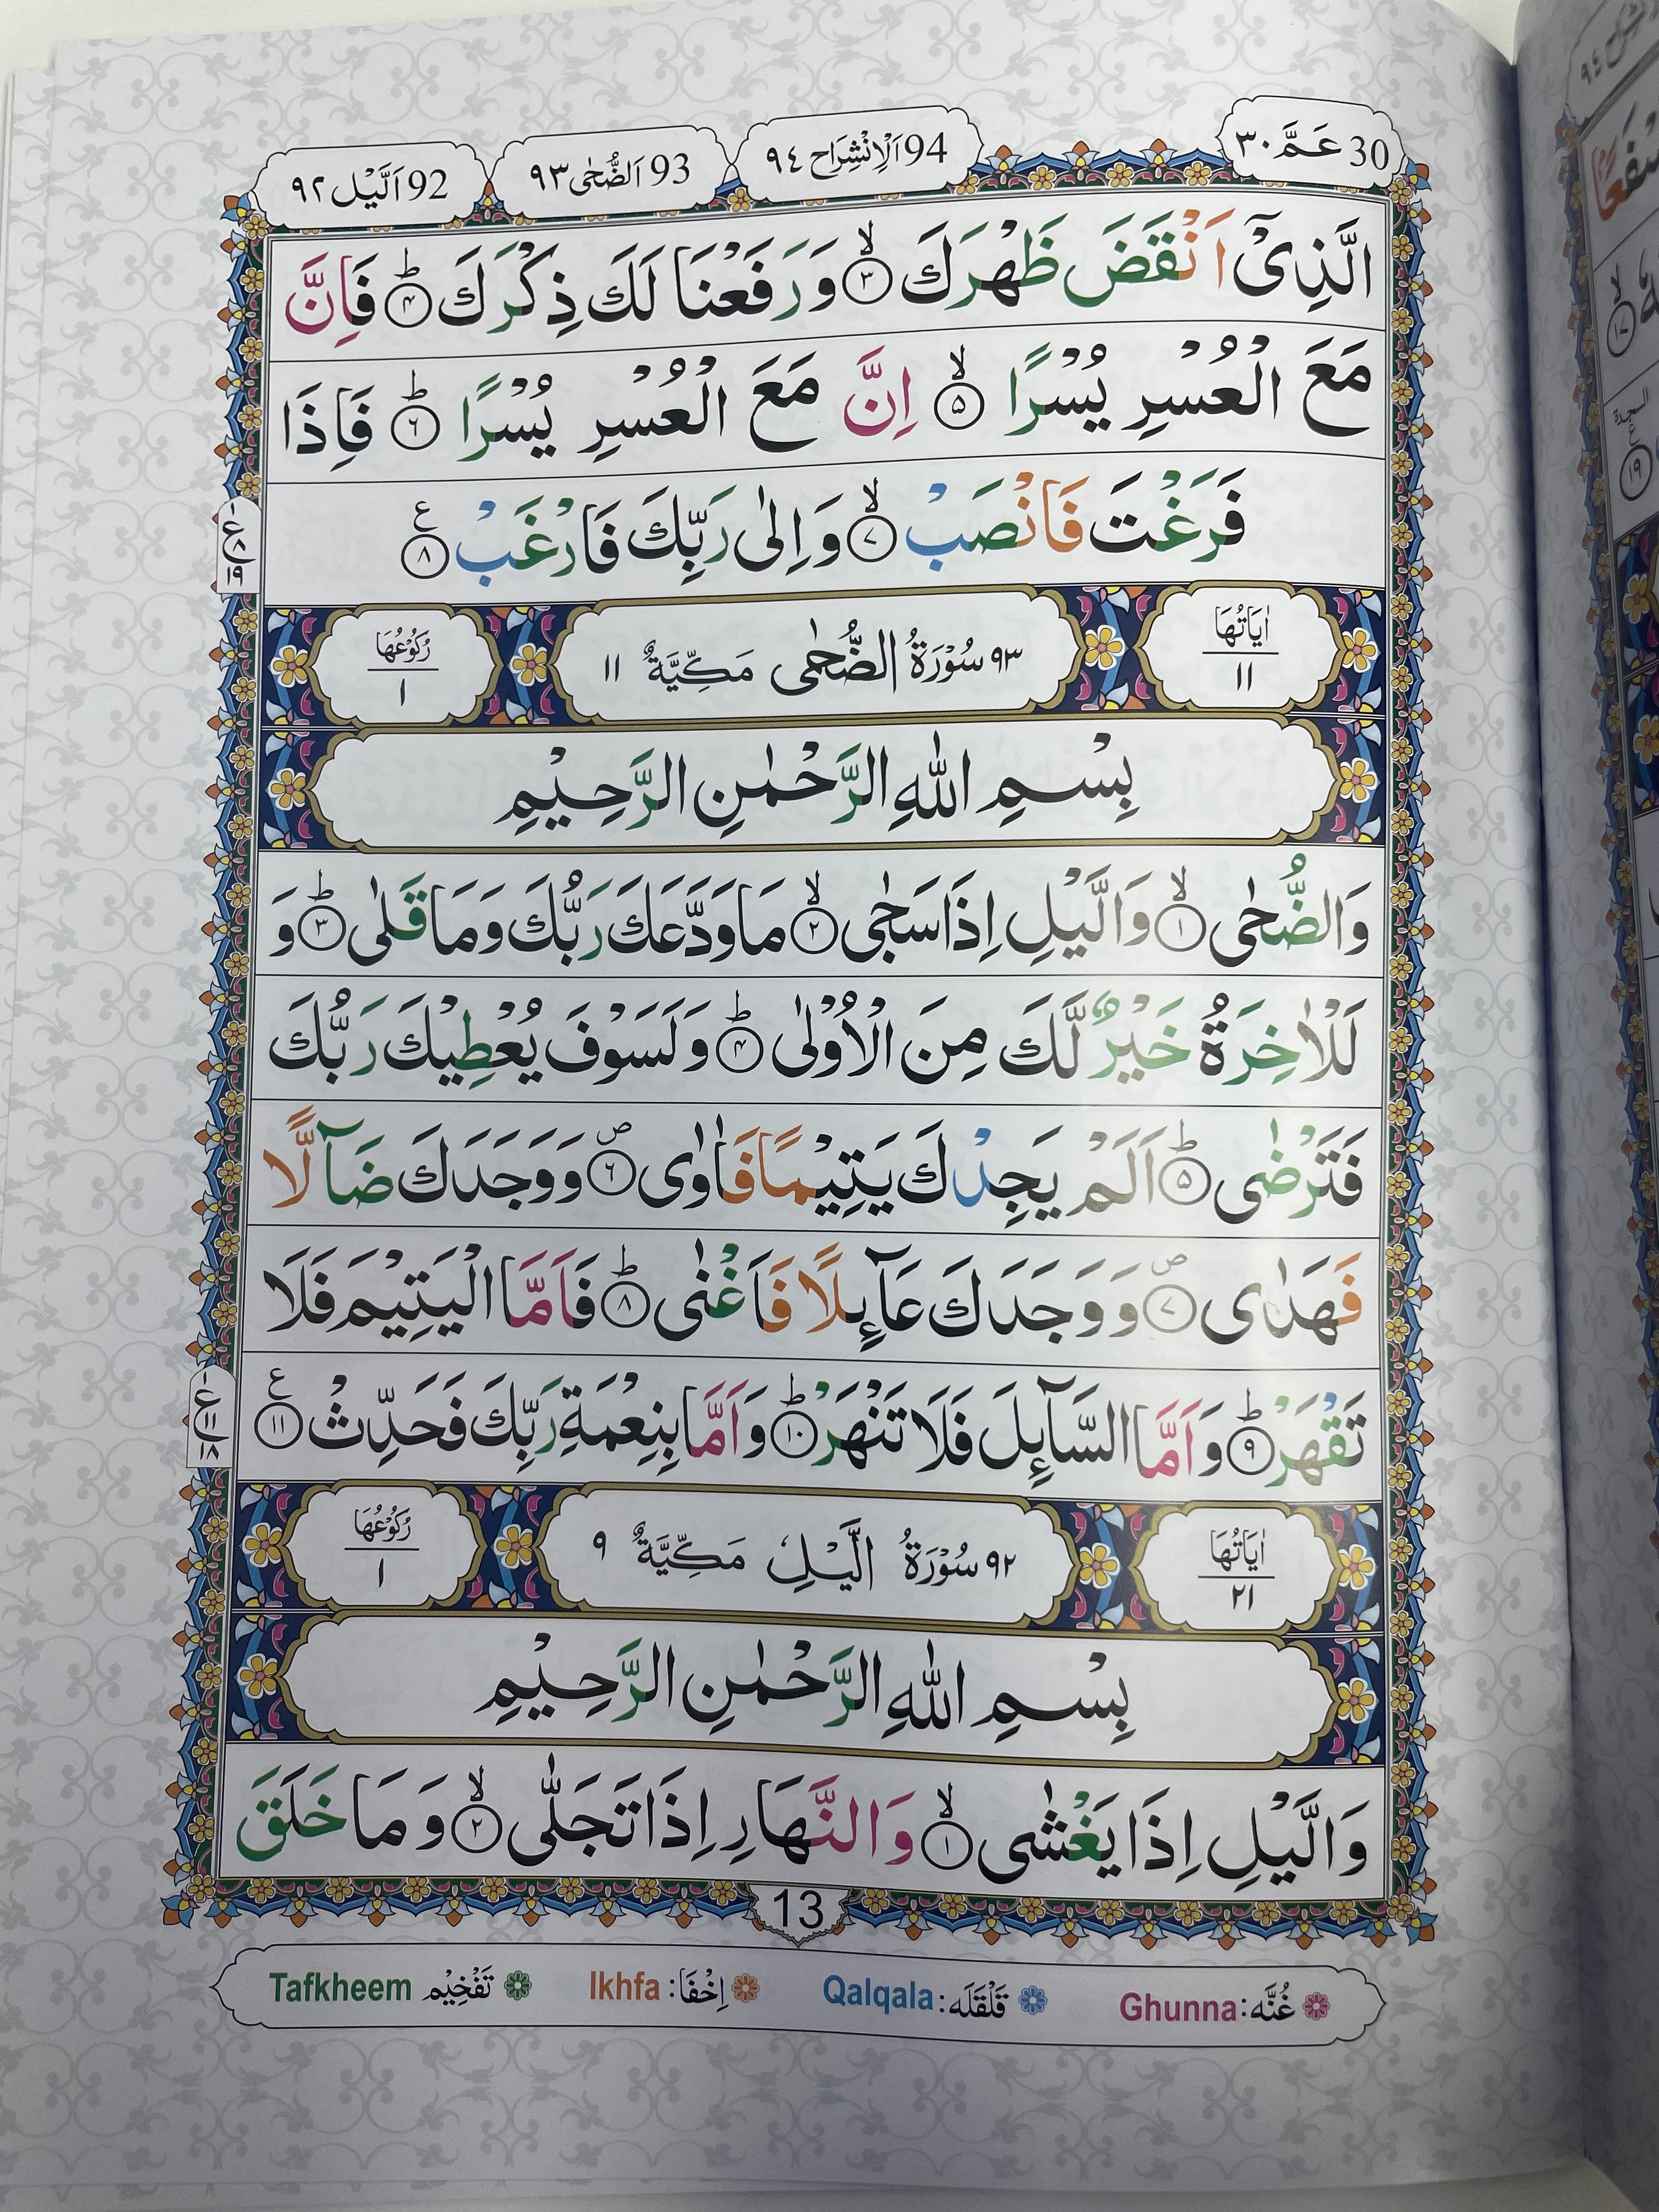 30 عَمَّ ٣٠
94 اَلْاِنْشِرَاح ٩٤
93 اَلضُّحٰى ٩٣
92 اَلَّيْل ٩٢
الَّذِىْٓ اَنْقَضَ ظَهْرَكَ ۙ‏﴿۳﴾ وَرَفَعْنَا لَكَ ذِكْرَكَ ؕ‏﴿۴﴾ فَاِنَّ
مَعَ الْعُسْرِ يُسْرًا ۙ‏﴿۵﴾ اِنَّ مَعَ الْعُسْرِ يُسْرًا ؕ‏﴿۶﴾ فَاِذَا
فَرَغْتَ فَانْصَبْ ۙ‏﴿۷﴾ وَاِلٰى رَبِّكَ فَارْغَبْ ﴿۸﴾ ع
ع ٨ ١٩
اٰيَاتُهَا ١١
٩٣ سُوْرَةُ الضُّحٰى مَكِّيَّةٌ ١١
رُكُوْعُهَا ١
بِسْمِ اللّٰهِ الرَّحْمٰنِ الرَّحِيْمِ
وَالضُّحٰى ۙ‏﴿۱﴾ وَالَّيْلِ اِذَا سَجٰى ۙ‏﴿۲﴾ مَا وَدَّعَكَ رَبُّكَ وَمَا قَلٰى ؕ‏﴿۳﴾ وَ
لَلْاٰخِرَةُ خَيْرٌ لَّكَ مِنَ الْاُوْلٰى ؕ‏﴿۴﴾ وَلَسَوْفَ يُعْطِيْكَ رَبُّكَ
فَتَرْضٰى ؕ‏﴿۵﴾ اَلَمْ يَجِدْكَ يَتِيْمًا فَاٰوٰى ۖ‏﴿۶﴾ وَوَجَدَكَ ضَآلًّا
فَهَدٰى ۖ‏﴿۷﴾ وَوَجَدَكَ عَآىِٕلًا فَاَغْنٰى ؕ‏﴿۸﴾ فَاَمَّا الْيَتِيْمَ فَلَا
تَقْهَرْ ؕ‏﴿۹﴾ وَاَمَّا السَّآىِٕلَ فَلَا تَنْهَرْ ؕ‏﴿۱۰﴾ وَاَمَّا بِنِعْمَةِ رَبِّكَ فَحَدِّثْ ﴿۱۱﴾ ع
ع ١١ ١٨
اٰيَاتُهَا ٢١
٩٢ سُوْرَةُ الَّيْلِ مَكِّيَّةٌ ٩
رُكُوْعُهَا ١
بِسْمِ اللّٰهِ الرَّحْمٰنِ الرَّحِيْمِ
وَالَّيْلِ اِذَا يَغْشٰى ۙ‏﴿۱﴾ وَالنَّهَارِ اِذَا تَجَلّٰى ۙ‏﴿۲﴾ وَمَا خَلَقَ
13
غُنَّه: Ghunna
قَلْقَلَه: Qalqala
اِخْفَا: Ikhfa
تَفْخِيْم Tafkheem